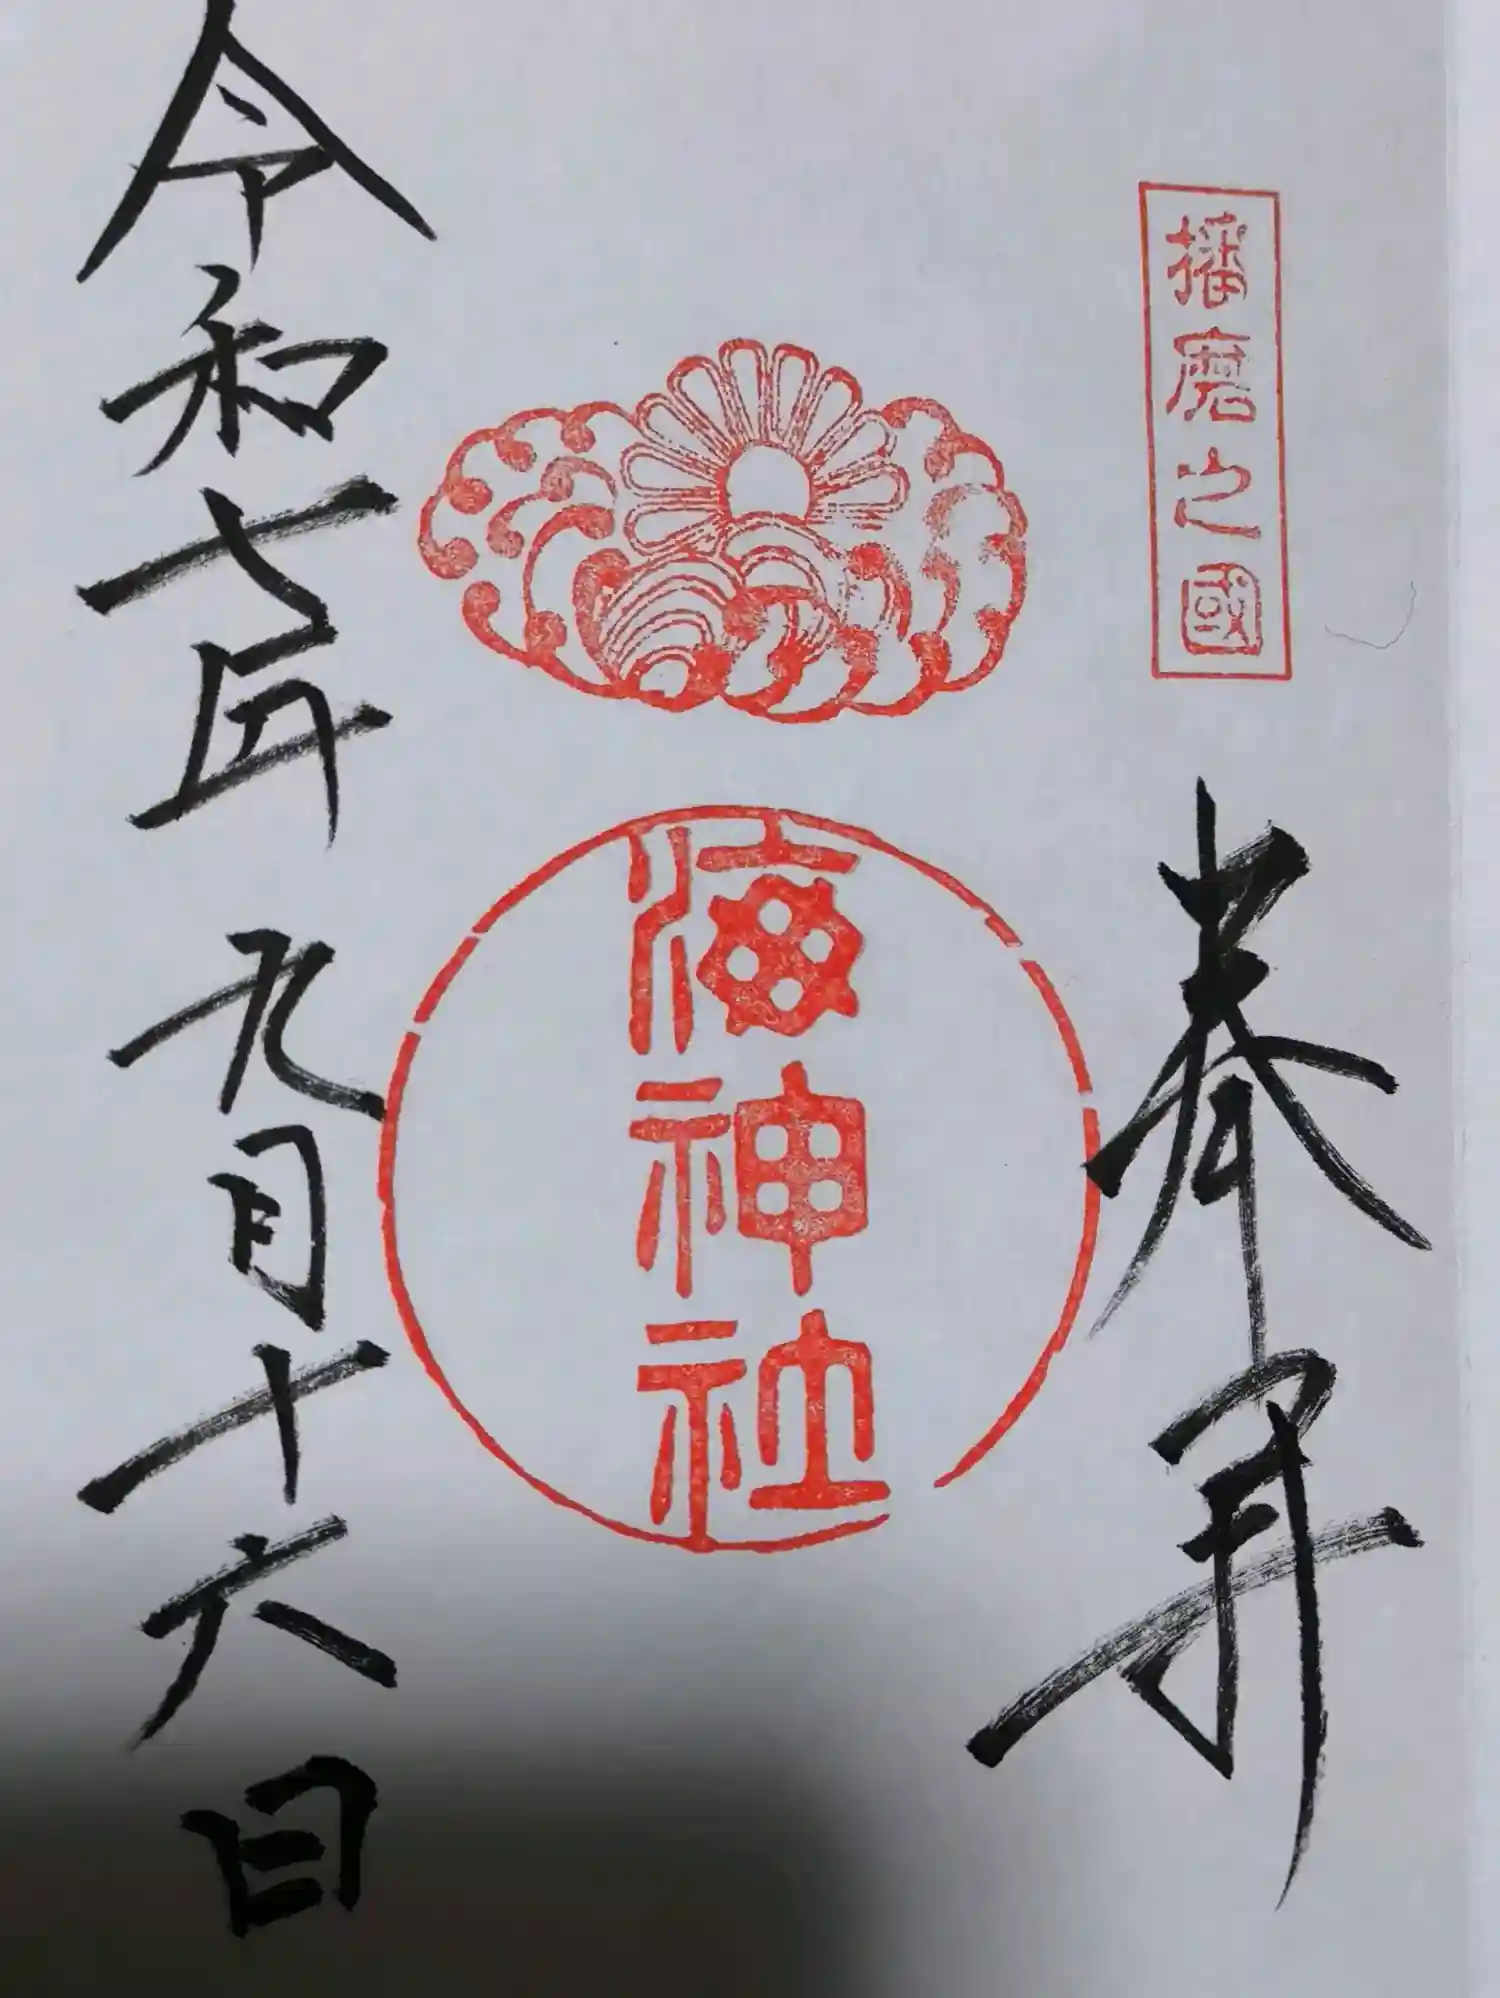 播磨之國
奉拜
海神社
令和七年 九月十六日